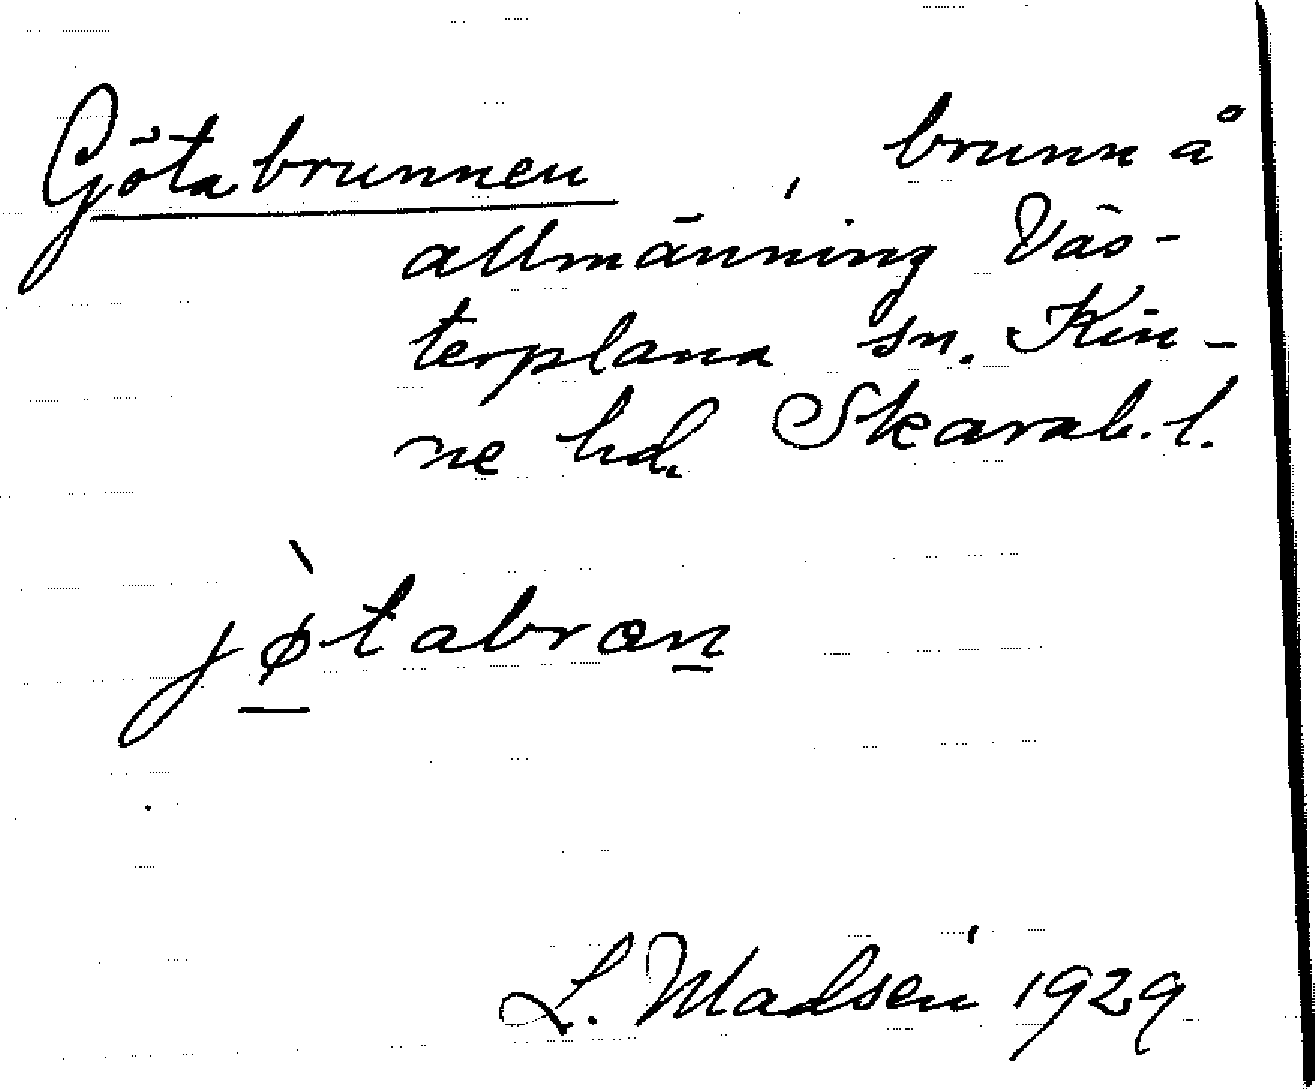 Götabrunnen, brunn å
allmänning Väs-
terplana sn. Kin-
ne hd. Skarab. l.
jø̀tabron
L. Madsén 1929